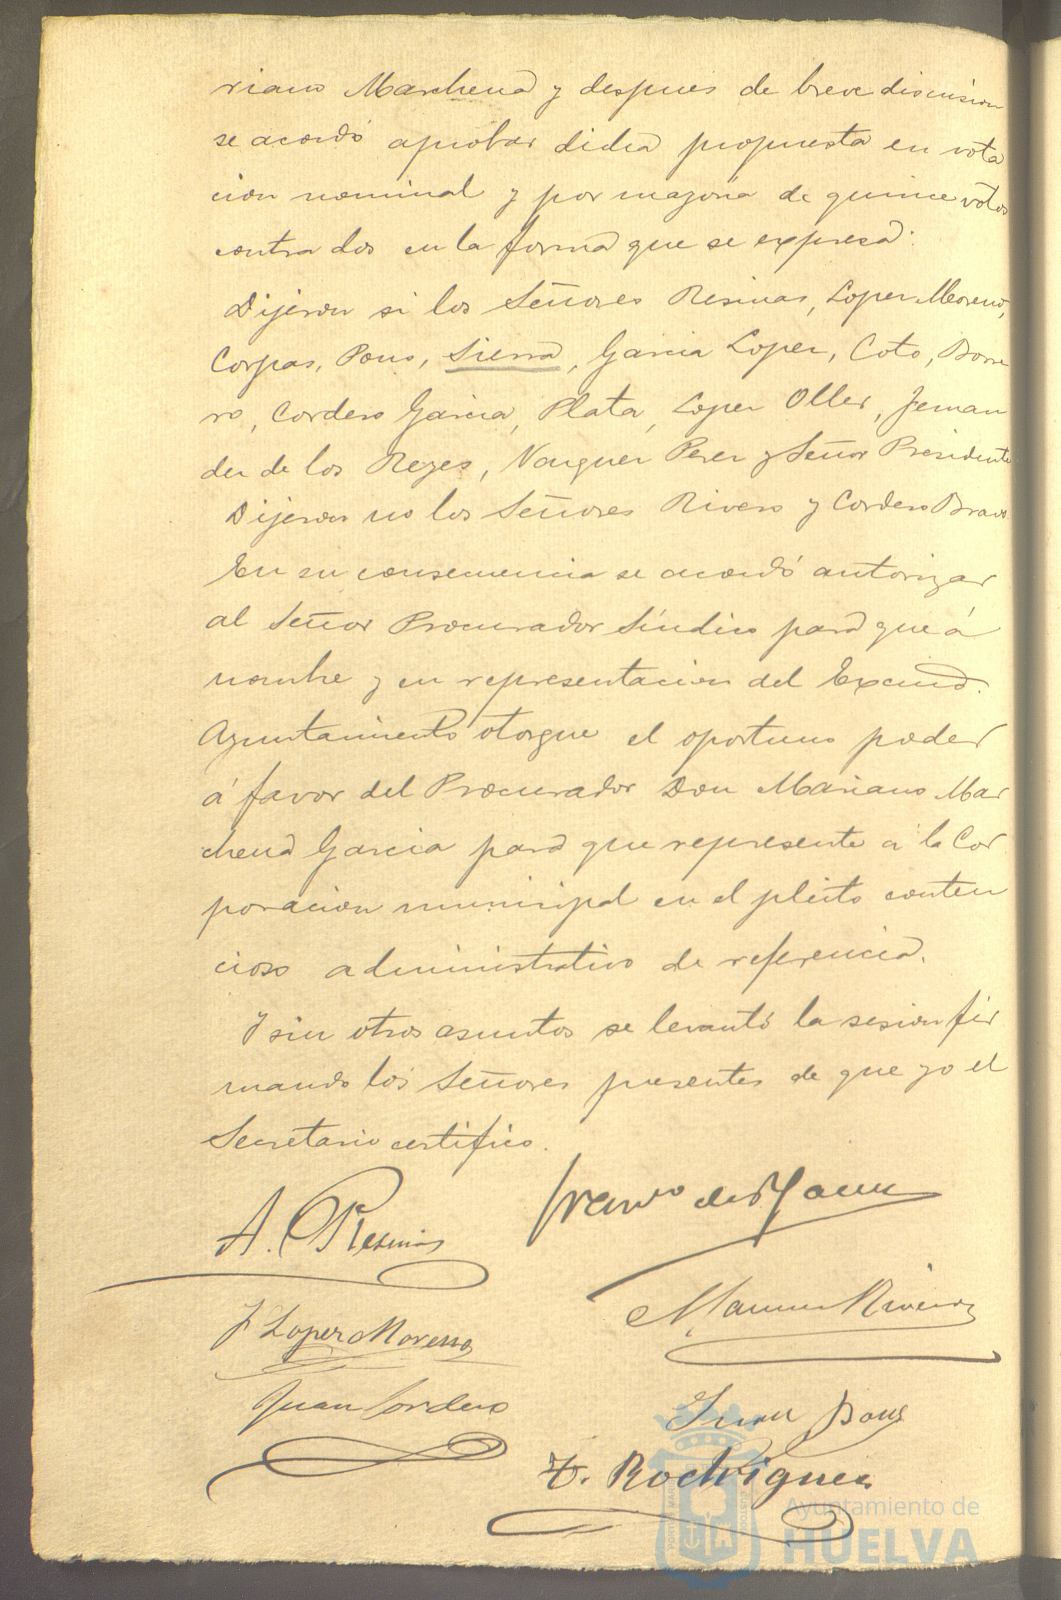 riano Marchena y despues de breve discusion
se acordó aprobar dicha propuesta en vota
cion nominal y por mayoria de quince votos
contra dos en la forma que se expresa:
Dijeron si los Señores Resinas, Lopez Moreno,
Corpas, Pons, Sierra, Garcia Lopez, Coto, Borre
ro, Cordero Garcia, Plata, Lopez Oller, Fernan
dez de los Reyes, Vazquez Perez y Señor Presidente
Dijeron no los Señores Rivero y Cordero Bravo.
En su consecuencia se acordó autorizar
al Señor Procurador Síndico para que á
nombre y en representacion del Excmo.
Ayuntamiento otorgue el oportuno poder
á favor del Procurador Don Mariano Mar
chena Garcia para que represente á la Cor
poracion municipal en el pleito conten
cioso administrativo de referencia.
Y sin otros asuntos se levantó la sesion fir
mando los Señores presentes de que yo el
Secretario certifico.
A. Resinas
J Lopez Moreno
Manuel Rivero
Juan Cordero
Juan Pons
T. Rodriguez
Ayuntamiento de
HUELVA